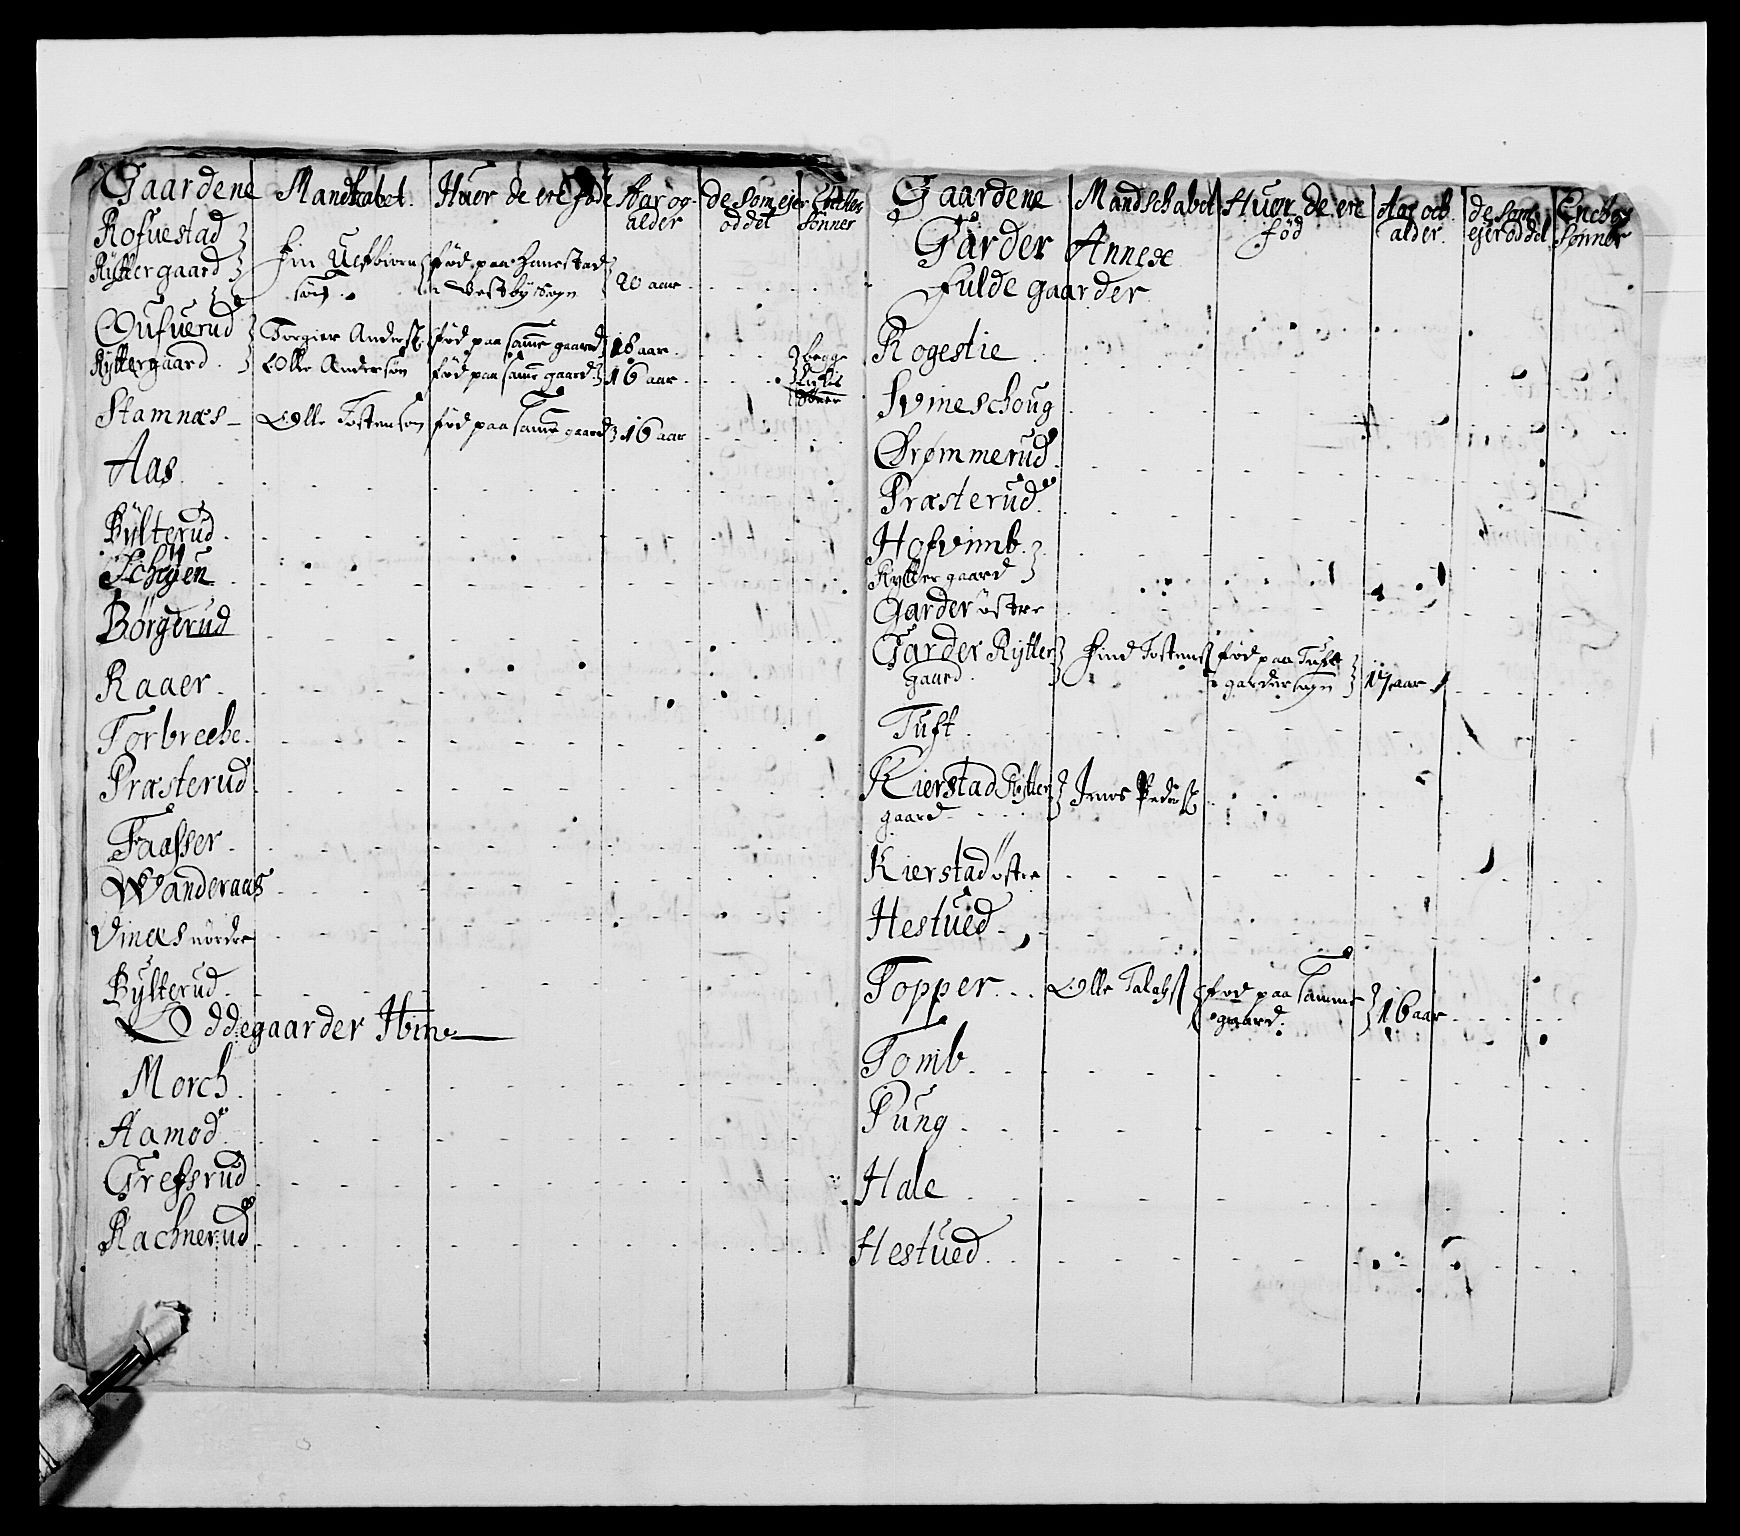 Gaardene Mandkabet. Huor de ere föde Aar og alder de som ejer oddet Enckes Sönner
Rofuestad
Ryttergaard Fin Uefbiørn søn. fød paa Hanestad i Vestby sogn 20 aar
Oufuerud Torgier Anders. fød paa samme gaard 18 aar.
Ryttergaard. Olle Andersøn fød paa samme gaard 16 aar begge
Stamnæs Olle Tostensøn fød paa samme gaard 16 aar
Aas.
Bÿlterud.
Schÿen
Börgerud
Raaer.
Torbreche.
Præsterud
Faasser.
Wanderaas
Vinæs nordre
Bÿlterud.
Oddegaarder Ibm
Morch.
Aamod.
Grefsrud
Rachnerud
Gaardene Mandschabet Huor de ere fød Aar och alder. de som ejer oddel Enckes Sönner
Garder Annex
Fulde gaarder
Rogestie
Svineschoug
Drømmerud.
Præsterud.
Hofvimb.
Ryttergaard
Garder östre
Garder Rytter Find Tostens fød paa Tuft
gaard. i garder sogn 17 aar
Tuft.
Kierstad Rytter Jens Peders
gaard
Kierstad östre
Hestued
Topper. Olle Talachs fød paa samme 16 aar
gaard.
Tomb.
Pung.
Hale
Hestued.